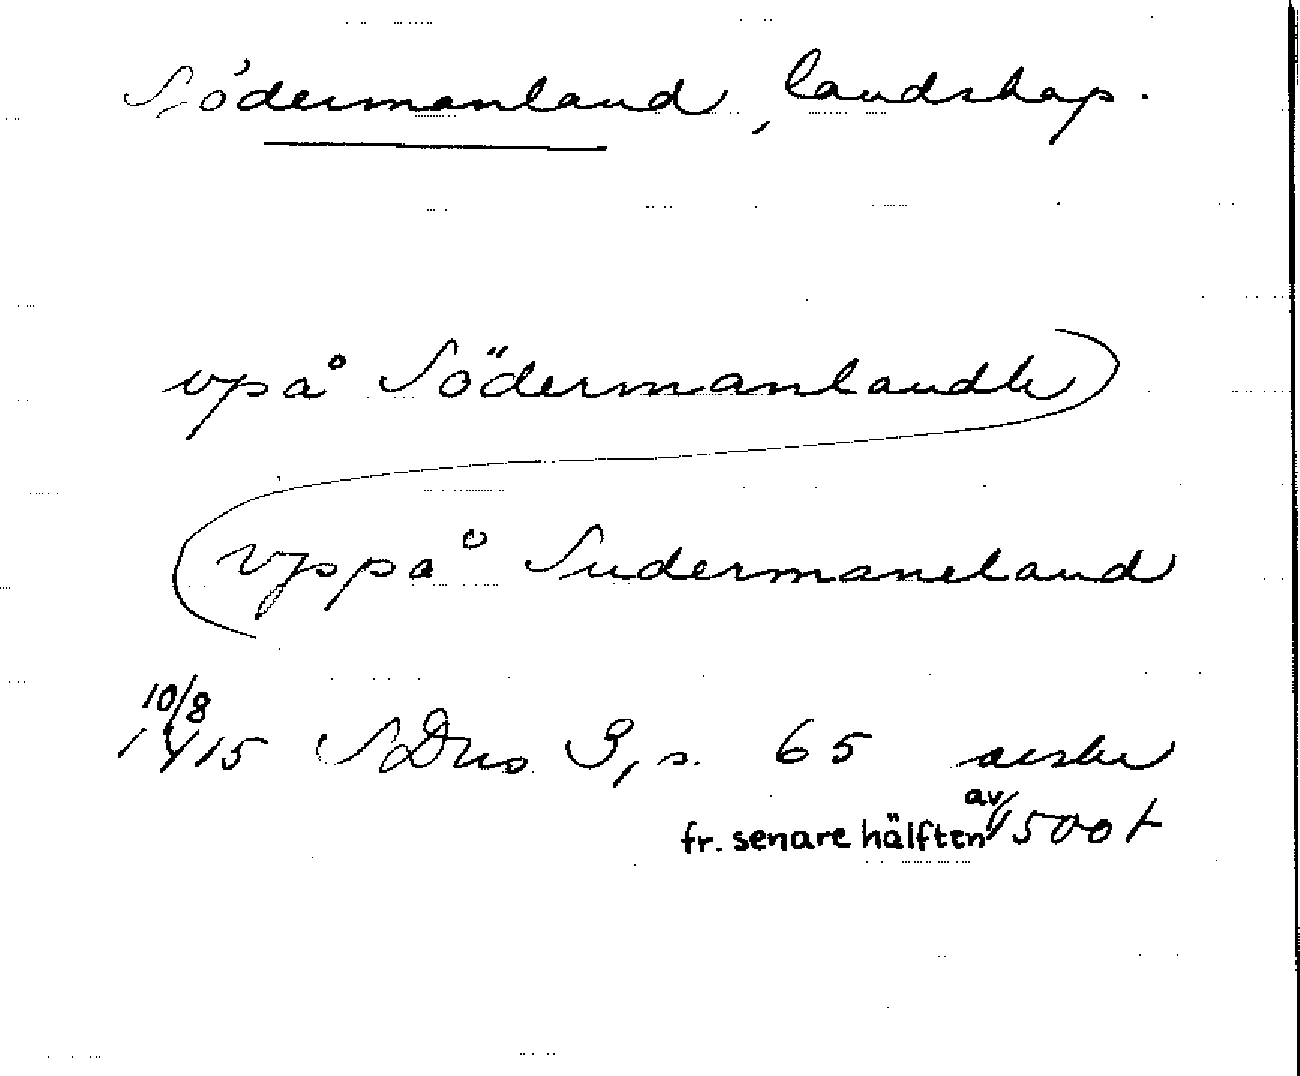 Södermanland, landskap.
vpå Södermanlandh
vppå Sudermaneland
10/8
1415 SDns 3, s. 65 avskr
av
fr. senare hälften 1500t